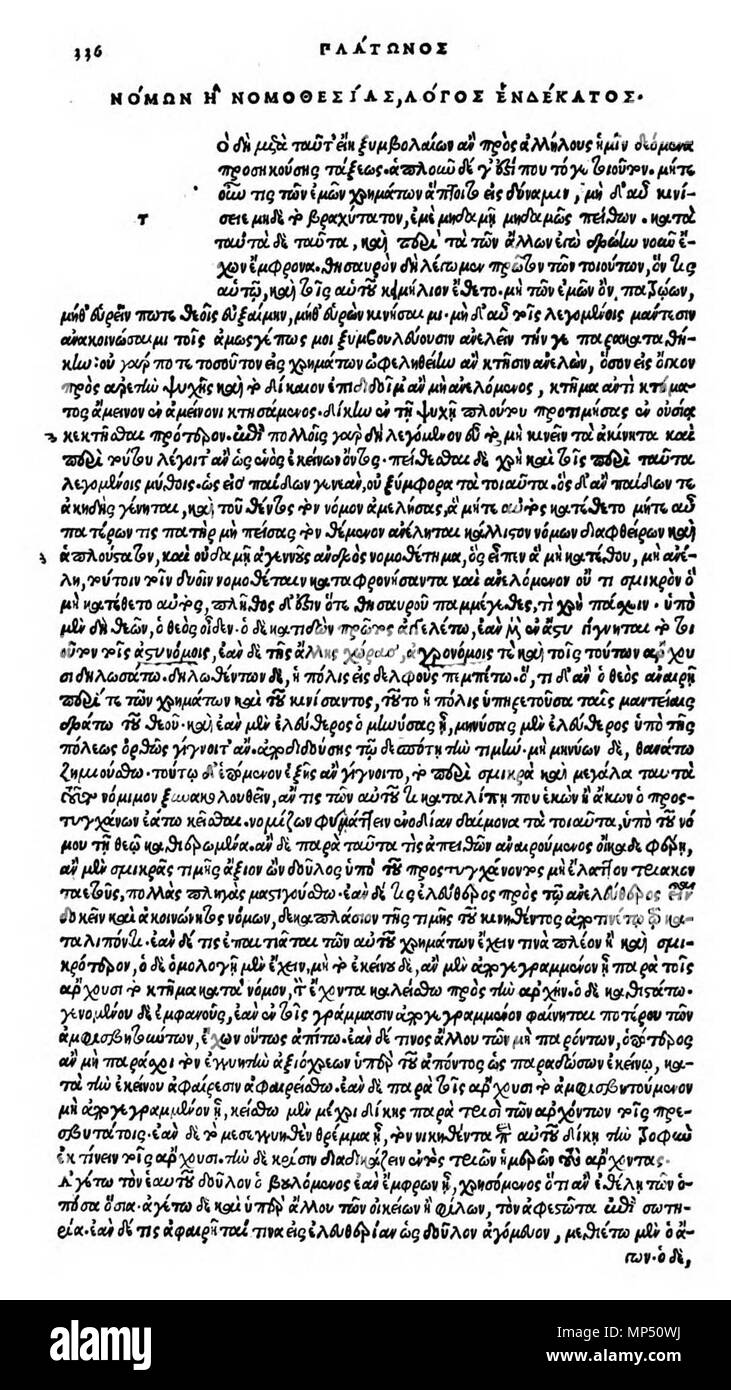 336 ΠΛΑ´ΤΩΝΟΣ
ΝΟ´ΜΩΝ Η῍ ΝΟΜΟΘΕΣΙ´ΑΣ, ΛΟ´ΓΟΣ ἙΝΔΕ´ΚΑΤΟΣ·
ὸ δὴ μετὰ ταῦτ' εἴη ξυμβολαίων ἂν πρὸς ἀλλήλους ἡμῖν δεόμενα
προσηκούσης τάξεως. ἁπλοῦν δέ γ' ἐστί που τό γε τοιοῦτον. μήτε
οὖν τις τῶν ἐμῶν χρημάτων ἅπτοιτο εἰς δύναμιν, μὴ δ' αὖ κινή-
σειε μηδὲ τὸ βραχύτατον, ἐμὲ μηδαμῇ μηδαμῶς πείθων. κατὰ
τ
ταὐτὰ δὲ ταῦτα, καὶ περὶ τὰ τῶν ἄλλων ἐγὼ δρῴην νοῦν ἔ-
χων ἔμφρονα. θησαυρὸν δὴ λέγωμεν πρῶτον τῶν τοιούτων, ὅν τις
αὑτῷ, καὶ τοῖς αὑτοῦ κειμήλιον ἔθετο. μὴ τῶν ἐμῶν ὢν πατέρων,
μήθ' εὑρεῖν ποτε θεοῖς εὐξαίμην, μήθ' εὑρὼν κινήσαιμι. μὴ δ' αὖ τοῖς λεγομένοις μάντεσιν
ἀνακοινώσαιμι τοῖς ἁμωσγέπως μοι ξυμβουλεύουσιν ἀνελεῖν τὴν γῇ παρακαταθή-
κην: οὐ γάρ ποτε τοσοῦτον εἰς χρημάτων ὠφεληθείην ἂν κτῆσιν ἀνελών, ὅσον εἰς ὄγκον
πρὸς ἀρετὴν ψυχῆς καὶ τὸ δίκαιον ἐπιδιδοίμ' ἂν μὴ ἀνελόμενος, κτῆμα ἀντὶ κτήμα-
τος ἄμεινον ἐν ἀμείνονι κτησάμενος. δίκην ἐν τῇ ψυχῇ πλούτου προτιμήσας ἐν οὐσίᾳ
κεκτῆσθαι πρότερον. ἐπὶ πολλοῖς γὰρ δὴ λεγόμενον εὖ τὸ, μὴ κινεῖν τὰ ἀκίνητα καὶ
περὶ τούτου λέγοιτ' ἂν ὡς ἑνὸς ἐκείνων ὄντος. πείθεσθαι δὲ χρὴ καὶ τοῖς περὶ ταῦτα
λεγομένοις μύθοις. ὡς εἰς παίδων γενεὰν, οὐ ξύμφορα τὰ τοιαῦτα. ὃς δ' ἂν παίδων τε
ἀκηδὴς γένηται, καὶ τοῦ θέντος τὸν νόμον ἀμελήσας, ἃ μήτε αὐτὸς κατέθετο μήτε αὖ
πατέρων τις πατὴρ μὴ πείσας τὸν θέμενον ἀνέληται κάλλιστον νόμων διαφθείρων καὶ
ἁπλούστατον, καὶ οὐδαμῇ ἀγεννοῦς ἀνδρὸς νομοθέτημα, ὃς εἶπεν ἃ μὴ κατέθου, μὴ ἀνέ-
λῃ, τούτοιν τοῖν δυοῖν νομοθέταιν καταφρονήσαντα καὶ ἀνελόμενον οὔ τι σμικρὸν ὃ
μὴ κατέθετο αὐτὸς, πλῆθος δ' ἔστιν ὅτε θησαυροῦ παμμέγεθες, τί χρὴ πάσχειν. ὑπὸ
μὲν δὴ θεῶν, ὁ θεὸς οἶδεν. ὁ δὲ κατιδὼν πρῶτος ἀγγελέτω, ἐὰν μὲν ἐν ἄστυ γίγνηται τὸ τοι
οῦτον τοῖς ἀστυνόμοις, ἐὰν δὲ τῆς ἄλλης χώρας, ἀγρονόμοις τε καὶ τοῖς τούτων ἄρχου
σι δηλωσάτω. δηλωθέντων δὲ, ἡ πόλις εἰς δελφοὺς πεμπέτω. ὅ, τι δ' ἂν ὁ θεὸς ἀναιρῇ
περί τε τῶν χρημάτων καὶ τοῦ κινήσαντος, τοῦτο ἡ πόλις ὑπηρετοῦσα ταῖς μαντείαις
δράτω τοῦ θεοῦ. καὶ ἐὰν μὲν ἐλεύθερος ὁ μηνύσας ᾖ, μηνύσας μὲν ἐλεύθερος ὑπὸ τῆς
πόλεως ὀρθῶς γίγνοιτ' ἂν. ἀποδιδούσης τῷ δεσπότῃ τὴν τιμήν. μὴ μηνύων δὲ, θανάτῳ
ζημιούσθω. τούτῳ δ' ἑπόμενον ἑξῆς ἂν γίγνοιτο, τὸ περὶ σμικρὰ καὶ μεγάλα ταυτὰ
τοῦτο νόμιμον ξυνακολουθεῖν, ἄν τις τῶν αὑτοῦ τι καταλίπῃ που ἑκὼν ἢ ἄκων ὁ προσ-
τυγχάνων ἐάτω κεῖσθαι. νομίζων φυλάττειν ἐνοδίαν δαίμονα τὰ τοιαῦτα, ὑπὸ τοῦ νό
μου τῇ θεῷ καθιερωμένα. ἂν δὲ παρὰ ταῦτά τις ἀπειθῶν ἀναιρούμενος οἴκαδε φέρῃ,
ἂν μὲν σμικρᾶς τιμῆς ἄξιον ὢν δοῦλος ὑπὸ τοῦ προστυγχάνοντος μὴ ἔλαττον τριακον
ταετοῦς, πολλὰς πληγὰς μαστιγούσθω. ἐὰν δέ τις ἐλεύθερος πρὸς τῷ ἀνελεύθερος εἶναι
δοκεῖν καὶ ἀκοινώνητος νόμων, δεκαπλάσιον τῆς τιμῆς τοῦ κινηθέντος ἀποτινέτω τῷ κα-
ταλιπόντι. ἐὰν δέ τις ἐπαιτιᾶται τῶν αὑτοῦ χρημάτων ἔχειν τινὰ πλέον ἢ καὶ σμι-
κρότερον, ὁ δὲ ὁμολογῇ μὲν ἔχειν, μὴ τὸ ἐκείνου δὲ, ἂν μὲν ἀπογεγραμμένον ᾖ παρὰ τοῖς
ἄρχουσι τὸ κτῆμα κατὰ νόμον, τὸν ἔχοντα καλείσθω πρὸς τὴν ἀρχήν. ὁ δὲ καθιστάτω.
γενομένου δὲ ἐμφανοῦς, ἐὰν ἐν τοῖς γράμμασιν ἀπογεγραμμένον φαίνηται ποτέρου τῶν
ἀμφισβητούντων, ἔχων οὗτος ἀπίτω. ἐὰν δέ τινος ἄλλου τῶν μὴ παρόντων, ὁπότερος
ἂν μὴ παράσχῃ τὸν ἐγγυητὴν ἀξιόχρεων ὑπὲρ τοῦ ἀπόντος ὡς παραδώσων ἐκείνῳ, κα-
τὰ τὴν ἐκείνου ἀφαίρεσιν ἀφαιρείσθω. ἐὰν δὲ παρὰ τοῖς ἄρχουσι τὸ ἀμφισβητούμενον
μὴ ἀπογεγραμμένον ᾖ, κείσθω μὲν μέχρι δίκης παρὰ τρισὶ τῶν ἀρχόντων τοῖς πρε-
σβυτάτοις. ἐὰν δὲ τὸ μεσεγγυηθὲν θρέμμα ᾖ, τὸν νικηθέντα περὶ αὐτοῦ δίκῃ τὴν τροφὴν
ἐκτίνειν τοῖς ἄρχουσι. τὴν δὲ κρίσιν διαδικάζειν ἐντὸς τριῶν ἡμερῶν τοὺς ἄρχοντας.
Ἀγέτω τὸν ἑαυτοῦ δοῦλον ὁ βουλόμενος ἐὰν ἔμφρων ᾖ, χρησόμενος ὅτι ἂν ἐθέλῃ τῶν ὁ-
πόσα ὅσια. ἀγέτω δὲ καὶ ὑπὲρ ἄλλου τῶν οἰκείων ἢ φίλων, τὸν ἀφεστῶτα ἐπὶ σωτη-
ρίᾳ. ἐὰν δέ τις ἀφαιρῆταί τινα εἰς ἐλευθερίαν ὡς δοῦλον ἀγόμενον, μεθιέτω μὲν ὁ ἄ-
γων. ὁ δὲ,
alamy
Image ID: MP50WJ
www.alamy.com